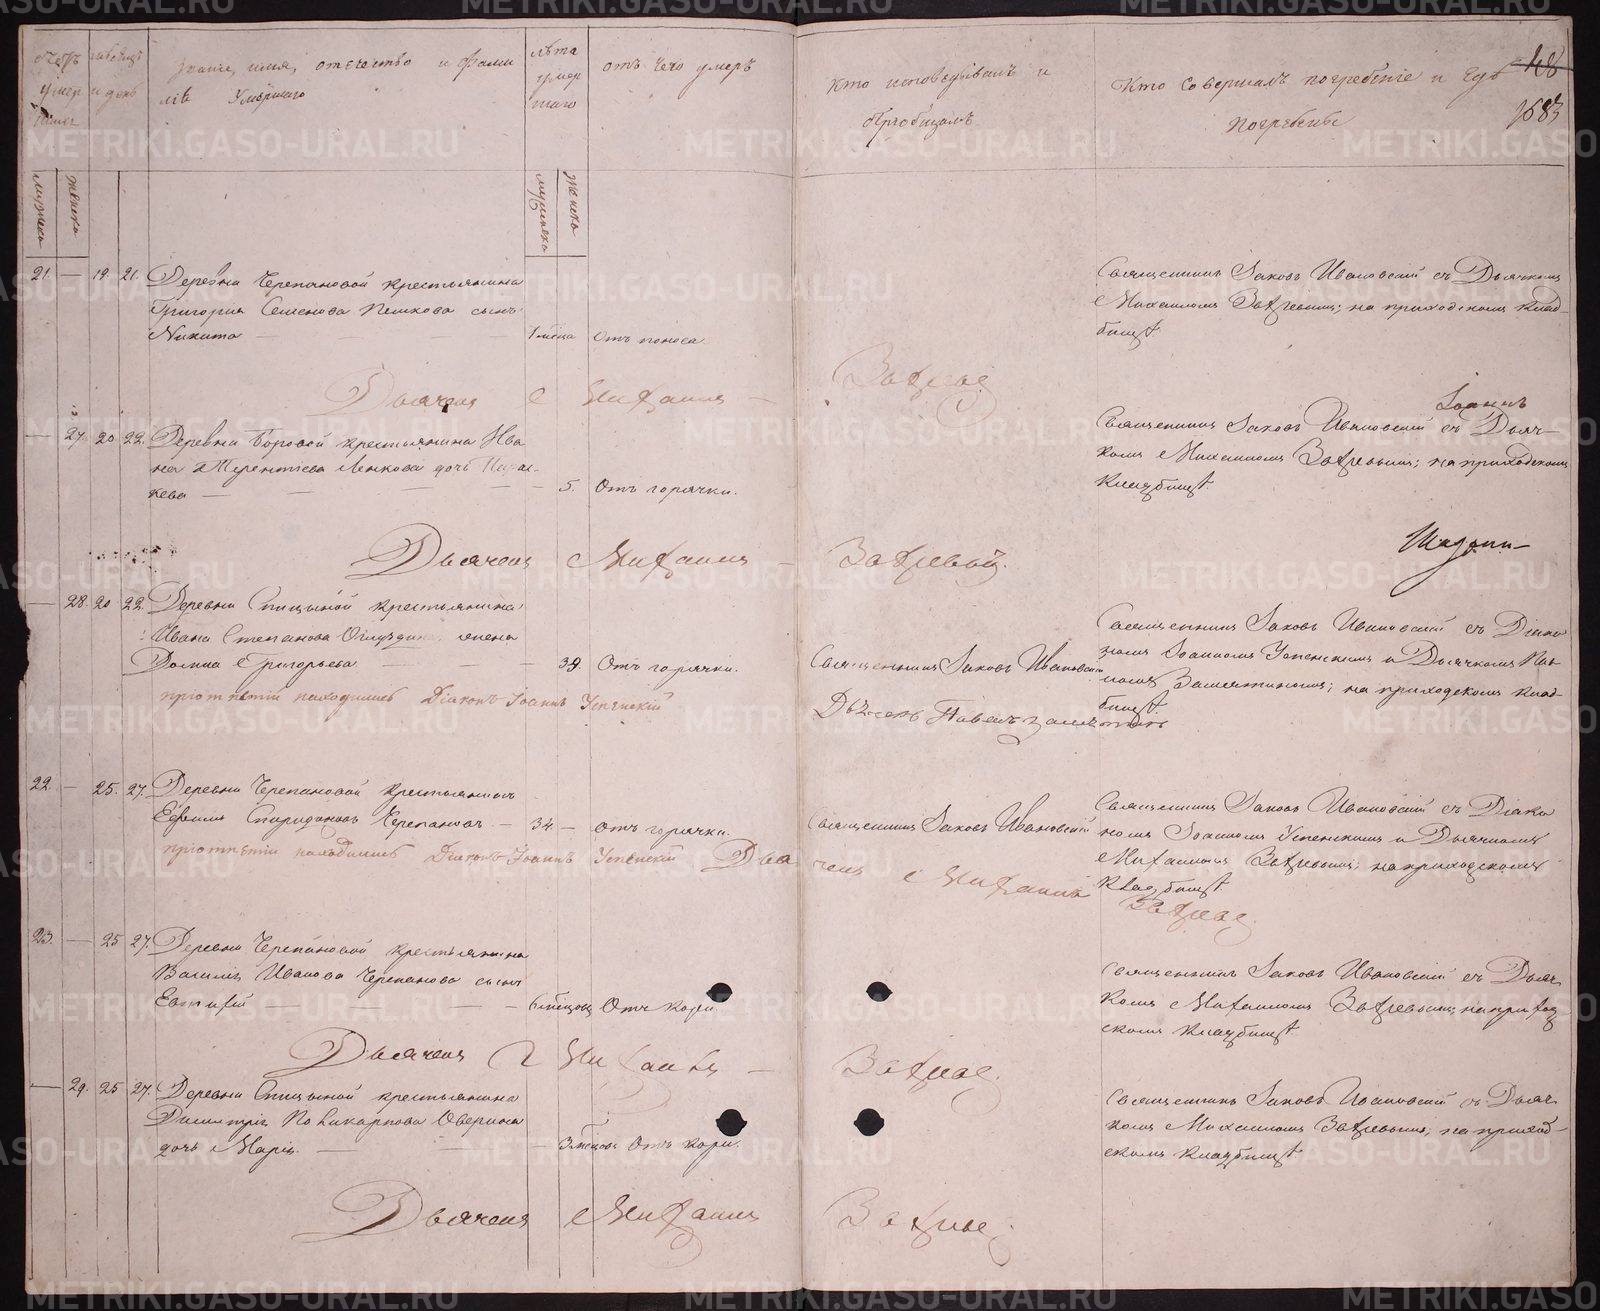 звание, имя, отечество и фами
лiя Умершаго
лѣта
умер
шаго
отъ чего умеръ
Кто исповѣдывалъ и
пріобщалъ
Кто совершалъ погребеніе и гдѣ
погребены
168
1683
мужеска
женска
мужеска
женска
21. — 19. 21. Деревни Черепановой крестьянина
Григорья Семенова Пешкова сынъ
Никита — 1 мѣсяца Отъ поноса.
Священникъ Іаковъ Ивановскій съ Дьячкомъ
Михаиломъ
на приходскомъ клад-
бищѣ.
Дьячекъ Михаилъ
— 27. 20 22. Деревни Боровой крестьянина Ива
на Терентьева дочь Парас-
кева — 5. Отъ горячки.
Священникъ Іаковъ Ивановскій съ Дьяч-
комъ Михаиломъ
на приходскомъ
кладбищѣ.
Іоаннъ
Дьячекъ Михаилъ
Шадрин
— 28. 20 22. Деревни Спицыной крестьянина
Ивана Степанова жена
Домна Григорьева — 38. Отъ горячки.
Священникъ Іаковъ Ивановскій
Священникъ Іаковъ Ивановскій съ Діяко
номъ Іоанномъ Успенскимъ и Дьячкомъ Пав
ломъ Замятинымъ; на приходскомъ клад-
бищѣ.
при отпѣтіи находились Діаконъ Іоаннъ Успенскій
Дьячекъ Павелъ Замятинъ
22. — 25. 27. Деревни Черепановой крестьянинъ
Ефимъ Спиридоновъ Черепановъ — 34 — Отъ горячки.
Священникъ Іаковъ Ивановскій
Священникъ Іаковъ Ивановскій съ Діяко
номъ Іоанномъ Успенскимъ и Дьячкомъ
Михаиломъ
на приходскомъ
кладбищѣ.
при отпѣтіи находились Діаконъ Іоаннъ Успенскій Дья
чекъ Михаилъ
23. — 25 27. Деревни Черепановой крестьянина
Василья Иванова Черепанова сынъ
Евтифій — 6 мѣсяцовъ Отъ кори.
Священникъ Іаковъ Ивановскій съ Дьяч-
комъ Михаиломъ
на приход
скомъ кладбищѣ
Дьячекъ Михаилъ
— 29. 25 27. Деревни Спицыной крестьянина
Димитрія Поликарпова Оверина
дочь Марія. — 3 мѣсяцовъ Отъ кори.
Священникъ Іаковъ Ивановскій съ Дьяч
комъ Михаиломъ
на приход-
скомъ кладбищѣ
Дьячекъ Михаилъ
METRIKI.GASO-URAL.RU